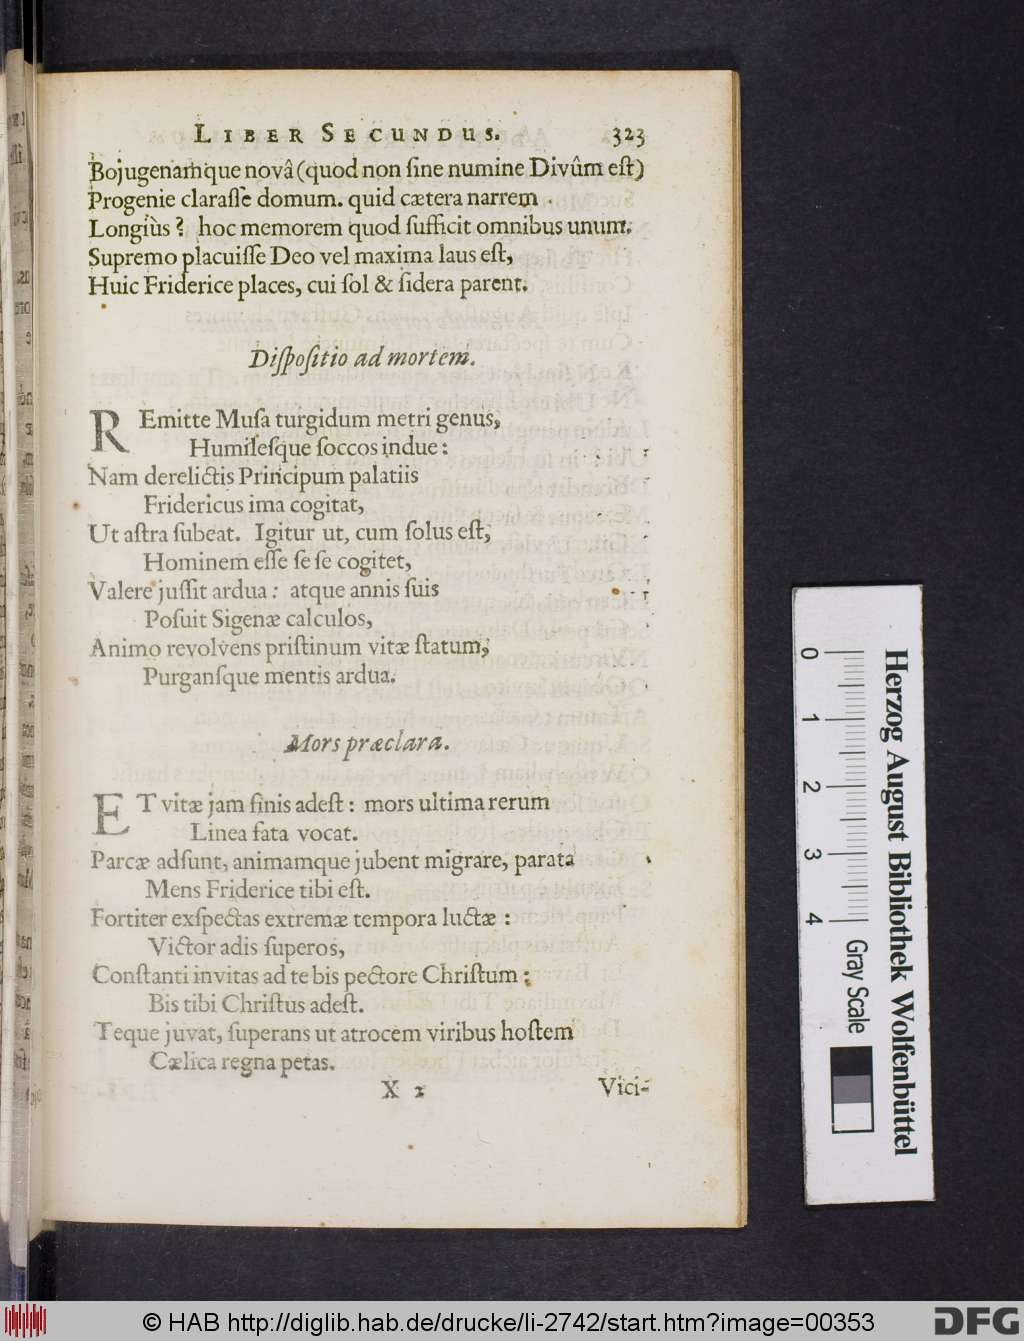 LIBER SECUNDUS. 323
Bojugenamque novâ (quod non ſine numine Divûm eſt)
Progenie claraſſe domum. quid cætera narrem
Longiùs? hoc memorem quod ſufficit omnibus unum.
Supremo placuiſſe Deo vel maxima laus eſt,
Huic Friderice places, cui ſol & ſidera parent.
Diſpoſitio ad mortem.
REmitte Muſa turgidum metri genus,
Humileſque ſoccos indue:
Nam derelictis Principum palatiis
Fridericus ima cogitat,
Ut aſtra ſubeat. Igitur ut, cum ſolus eſt,
Hominem eſſe ſe ſe cogitet,
Valere juſſit ardua: atque annis ſuis
Poſuit Sigenæ calculos,
Animo revolvens priſtinum vitæ ſtatum,
Purganſque mentis ardua.
Mors præclara.
ET vitæ jam finis adeſt: mors ultima rerum
Linea fata vocat.
Parcæ adſunt, animamque jubent migrare, parata
Mens Friderice tibi eſt.
Fortiter exſpectas extremæ tempora luctæ:
Victor adis ſuperos,
Conſtanti invitas ad te bis pectore Chriſtum:
Bis tibi Chriſtus adeſt.
Teque juvat, ſuperans ut atrocem viribus hoſtem
Cælica regna petas.
X 2 Vici-
0 1 2 3 4
Gray Scale
Herzog August Bibliothek Wolfenbüttel
© HAB http://diglib.hab.de/drucke/li-2742/start.htm?image=00353
DFG